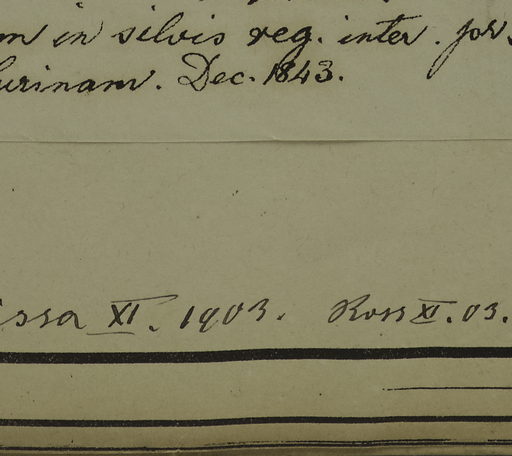 m in silvis reg. inter. por
urinam. Dec. 1843.
issa XI. 1903. Ross XI. 03.